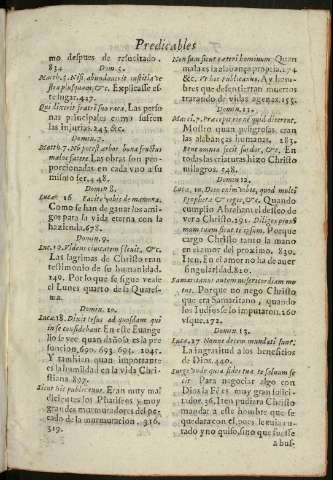 Predicables
mo despues de resucitado.
834.
Domin.5.
Matth.5. Nisi abundaverit iustitia ve-
stra plusquam, &c. Explicasse es-
te lugar. 427.
Qui dixerit fratri suo raca. Las perso
nas principales como sufren
las injurias. 243. &c.
Domin.7.
Matth.7. No potest arbor bona fructus
malos facere. Las obras son pro-
porcionadas en cada vno a su
mismo ser. 448.
Domin.8.
Lucæ 16. Facite vobis de mamona.
Como se han de ganar los ami-
gos para la vida eterna con la
hazienda. 678.
Domin.9.
Luc.19. Videns civitatem flevit, &c.
Las lagrimas de Christo eran
testimonio de su humanidad.
140. Por lo que se sigue veale
el Lunes quarto de la Quares-
ma.
Domin.10.
Lucæ.18. Dixit Iesus ad quosdam qui
in se confidebant. En este Euange
lio se vee quan dañosa es la pre
suncion. 690. 693. 1045.
Y tambien quan importante
es la humildad en la vida Chri-
stiana. 897.
Sicut hic publicanus. Eran muy mal
dicientes los Phariseos y muy
grandes murmuradores del pe-
cado de la murmuracion. 316.
319.
Non sum sicut cæteri hominum. Quan
mala es la alabança propria. 174
&c. Velut hic publicanus. Ay hom-
bres que desentierran muertos
tratando de vidas agenas. 155.
Domin.11.
Marci.7. Præcepit ne cui quid dicerent.
Mostro quan peligrosas eran
las alabanças humanas. 283.
Bene omnia fecit surdos, &c. En
todas las criaturas hizo Christo
milagros. 548.
Domin.12.
Luca.10. Dico enim vobis, quod multi
Prophetæ & reges, &c. Quando
cumplio Abraham el desseo de
vera Christo. 591. Diliges proxi-
mum tuum sicut te ipsum. Porque
cargo Christo tanto la mano
en el amor del proximo. 830.
Iten. En el amor no ha de auer
singularidad. 820.
Samaritanus autem misericordia mo
tus. Porque no nego Christo
que era Samaritano, quando
los Iudios se lo imputaron. 260
y sque. 172.
Domin.13.
Luca.17. Nonne decem mundati sunt?
La ingratitud a los beneficios
de Dios. 440.
Surge vade quia fides tua te saluum fe-
cit. Para negociar algo con
Dios la Fè es muy gran solici-
tador. 36. Iten pudiera Christo
mandar a este hombre que se
quedara con el, pues le auia cu-
rado y no quiso, sino que fuesse
a bus-